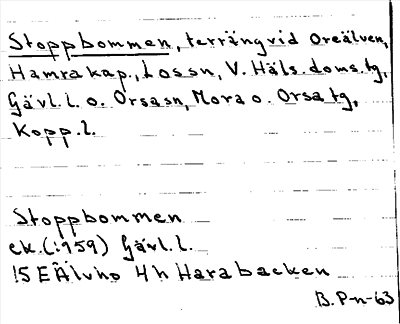 Stoppbommen, terräng vid Oreälven,
Hamra kap., Lossn, V. Häls. doms. tg,
Gävl. l. o. Orsasn, Mora o. Orsa tg,
Kopp. l.
Stoppbommen
ek. (:1959) Gävl. l.
15 E Älvho 4 h Harabacken
B. P-n-63